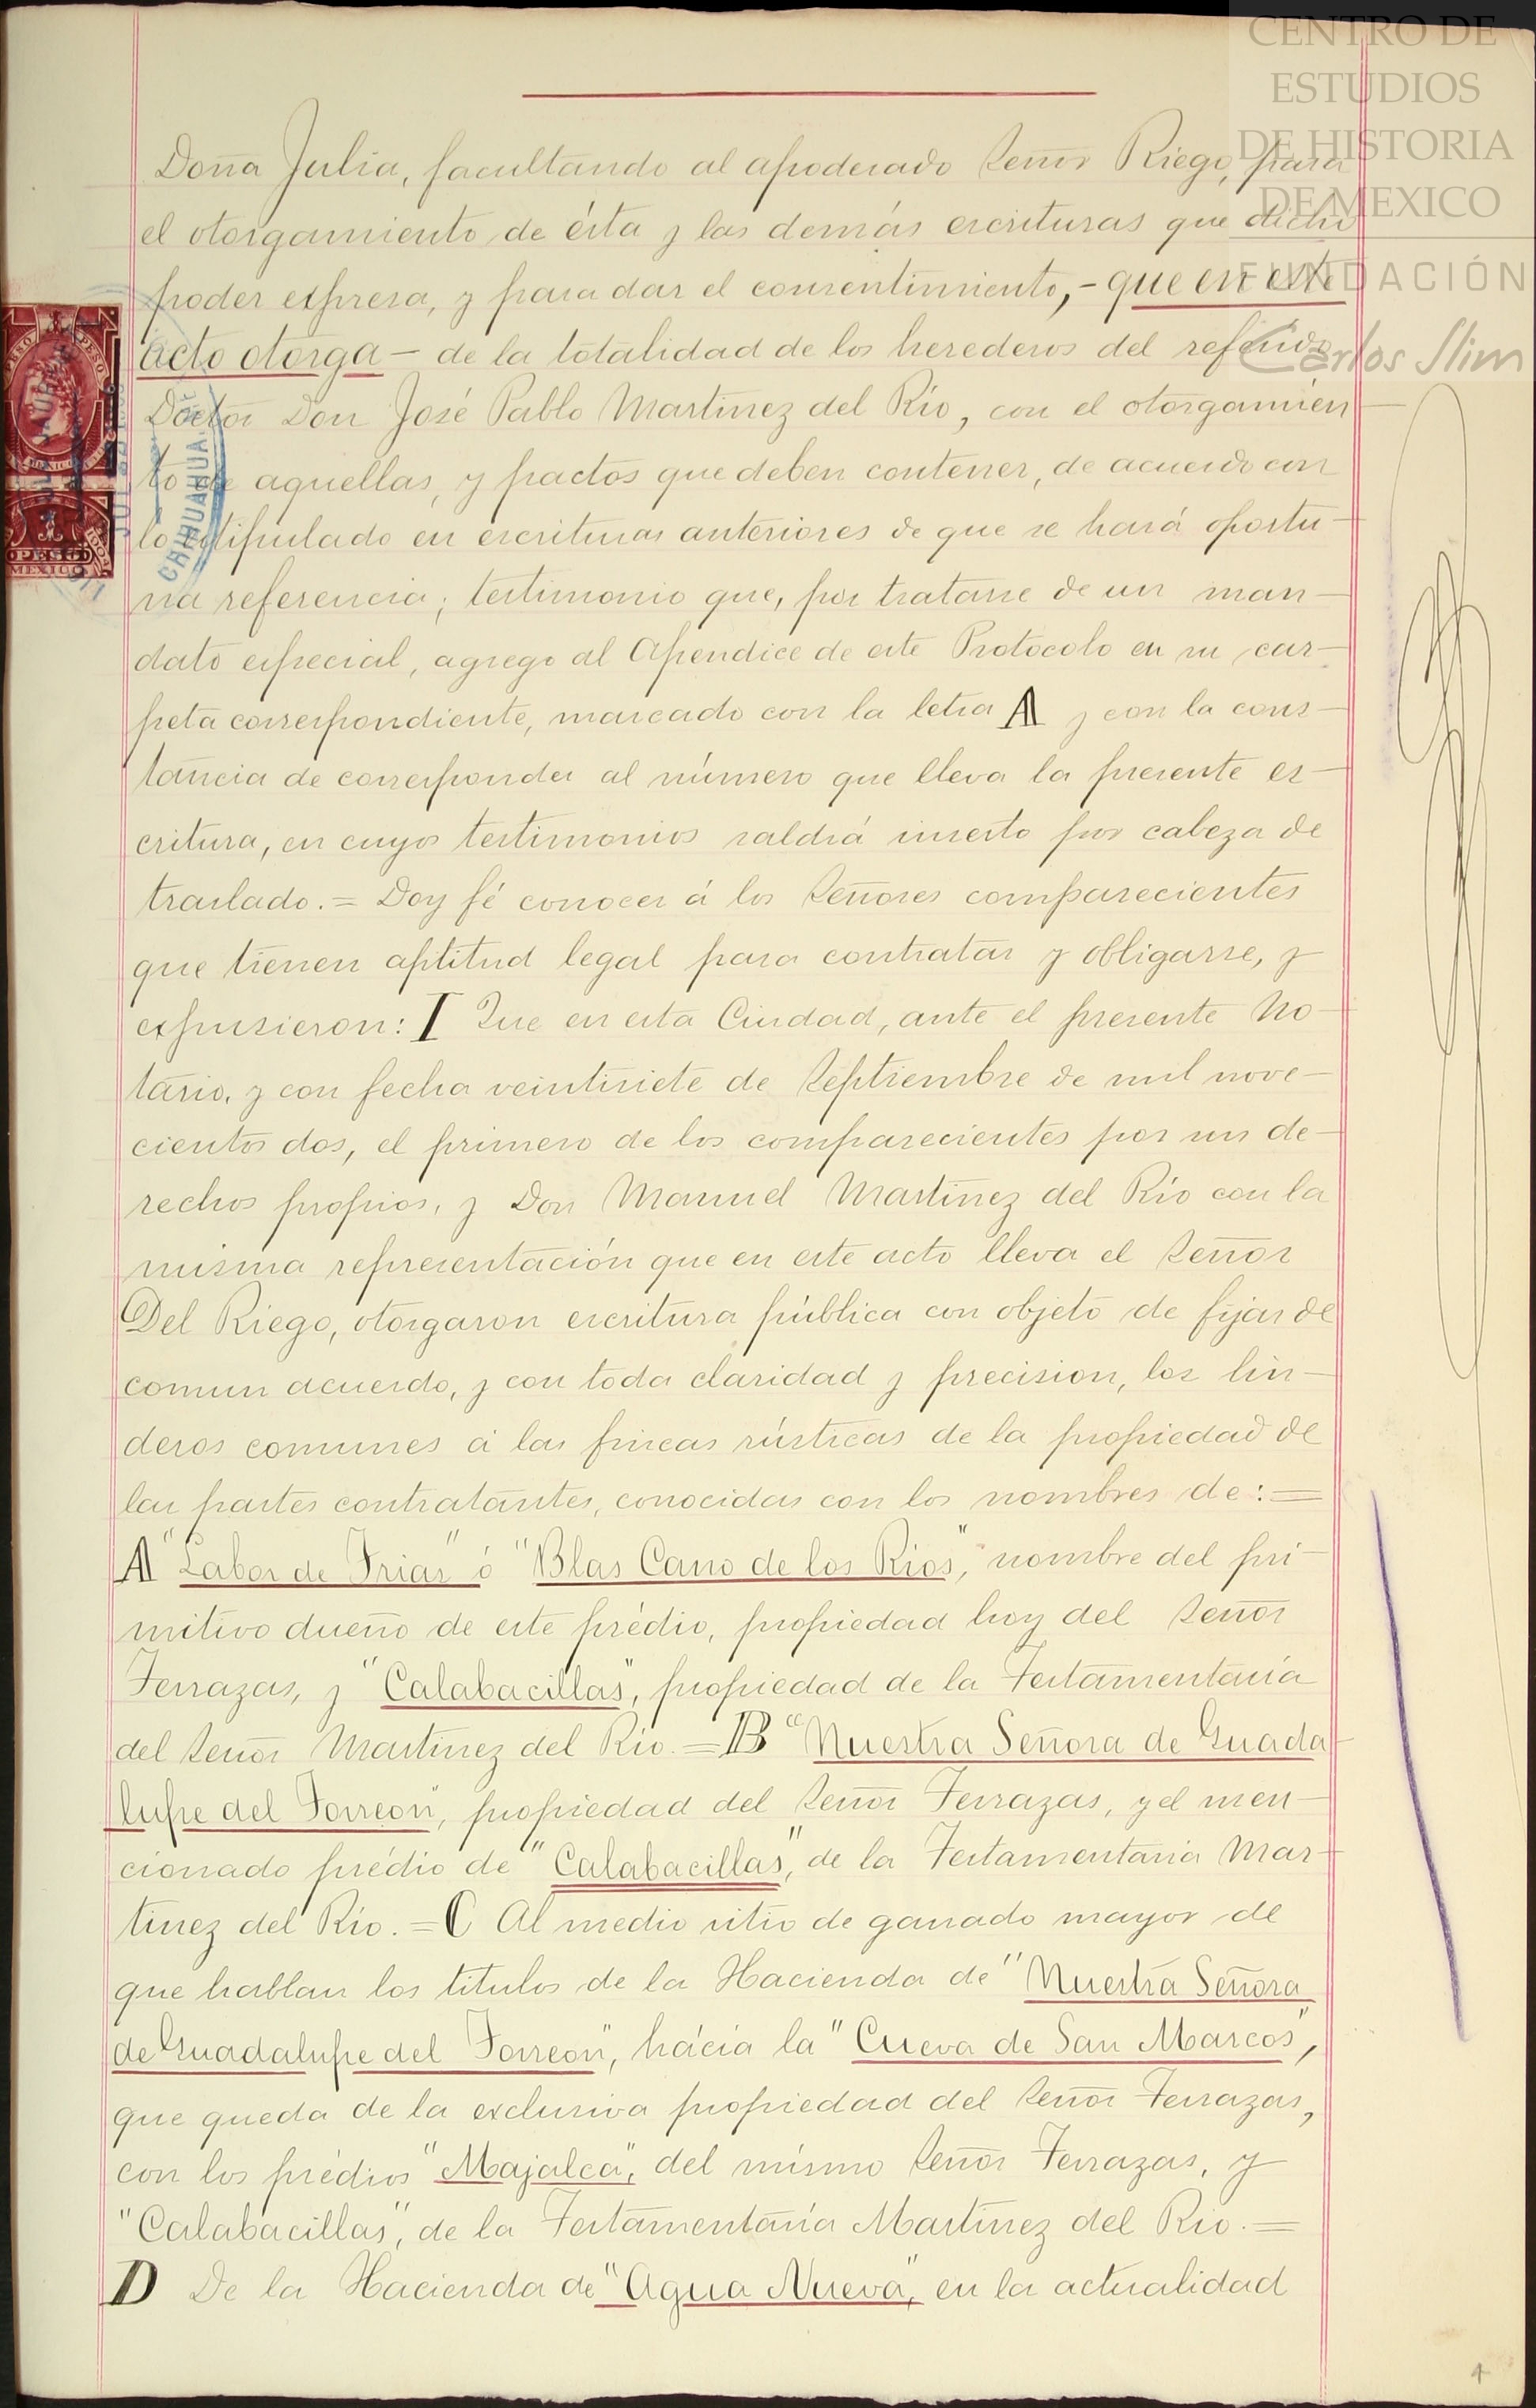 CENTRO DE
ESTUDIOS
DE HISTORIA
DE MEXICO
FUNDACIÓN
Carlos Slim
Doña Julia, facultando al apoderado Señor Riego, para
el otorgamiento de ésta y las demás escrituras que dicho
poder expresa, y para dar el consentimiento, - que en este
acto otorga - de la totalidad de los herederos del referido
Doctor Don José Pablo Martinez del Río, con el otorgamien
to de aquellas, y pactos que deben contener, de acuerdo con
lo estipulado en escrituras anteriores de que se hará oportu-
na referencia; testimonio que, por tratarse de un man-
dato especial, agrego al Apendice de este Protocolo en su car-
peta correspondiente, marcado con la letra A y con la cons-
tancia de corresponder al número que lleva la presente es-
critura, en cuyos testimonios saldrá inserto por cabeza de
traslado. = Doy fé conocer á los Señores comparecientes
que tienen aptitud legal para contratar y obligarse, y
expusieron: I Que en esta Ciudad, ante el presente No-
tario, y con fecha veintisiete de Septiembre de mil nove-
cientos dos, el primero de los comparecientes por sus de-
rechos propios, y Don Manuel Martinez del Río con la
misma representación que en este acto lleva el Señor
Del Riego, otorgaron escritura pública con objeto de fijar de
comun acuerdo, y con toda claridad y precision, los lin-
deros comunes á las fincas rústicas de la propiedad de
las partes contratantes, conocidas con los nombres de: =
A "Labor de Frias" ó "Blas Cano de los Rios", nombre del pri-
mitivo dueño de este prédio, propiedad hoy del Señor
Terrazas, y "Calabacillas", propiedad de la Testamentaría
del Señor Martinez del Rio. = B "Nuestra Señora de Guada-
lupe del Torreon", propiedad del Señor Terrazas, y el men-
cionado prédio de "Calabacillas", de la Testamentaria Mar-
tinez del Río. = C Al medio sitio de ganado mayor de
que hablan los titulos de la Hacienda de "Nuestra Señora
de Guadalupe del Torreon", hácia la "Cueva de San Marcos",
que queda de la exclusiva propiedad del Señor Terrazas,
con los prédios "Majalca", del mismo Señor Terrazas, y
"Calabacillas", de la Testamentaría Martinez del Rio. =
D De la Hacienda de "Agua Nueva", en la actualidad
CHIHUAHUA
PESO
MEXICO
4